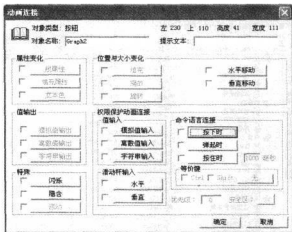 动画连接
对象类型: 按钮
左 230 上 110 高度 41 宽度 111
对象名称: Graph2
提示文本:
属性变化
线属性
填充属性
文本色
位置与大小变化
填充
缩放
旋转
水平移动
垂直移动
值输出
模拟值输出
离散值输出
字符串输出
权限保护动画连接
值输入
模拟值输入
离散值输入
字符串输入
命令语言连接
按下时
弹起时
按住时
毫秒
等价键
Ctrl
Shift
无
特殊
闪烁
隐含
流动
滑动杆输入
水平
垂直
优先级:
安全区:
确定
取消